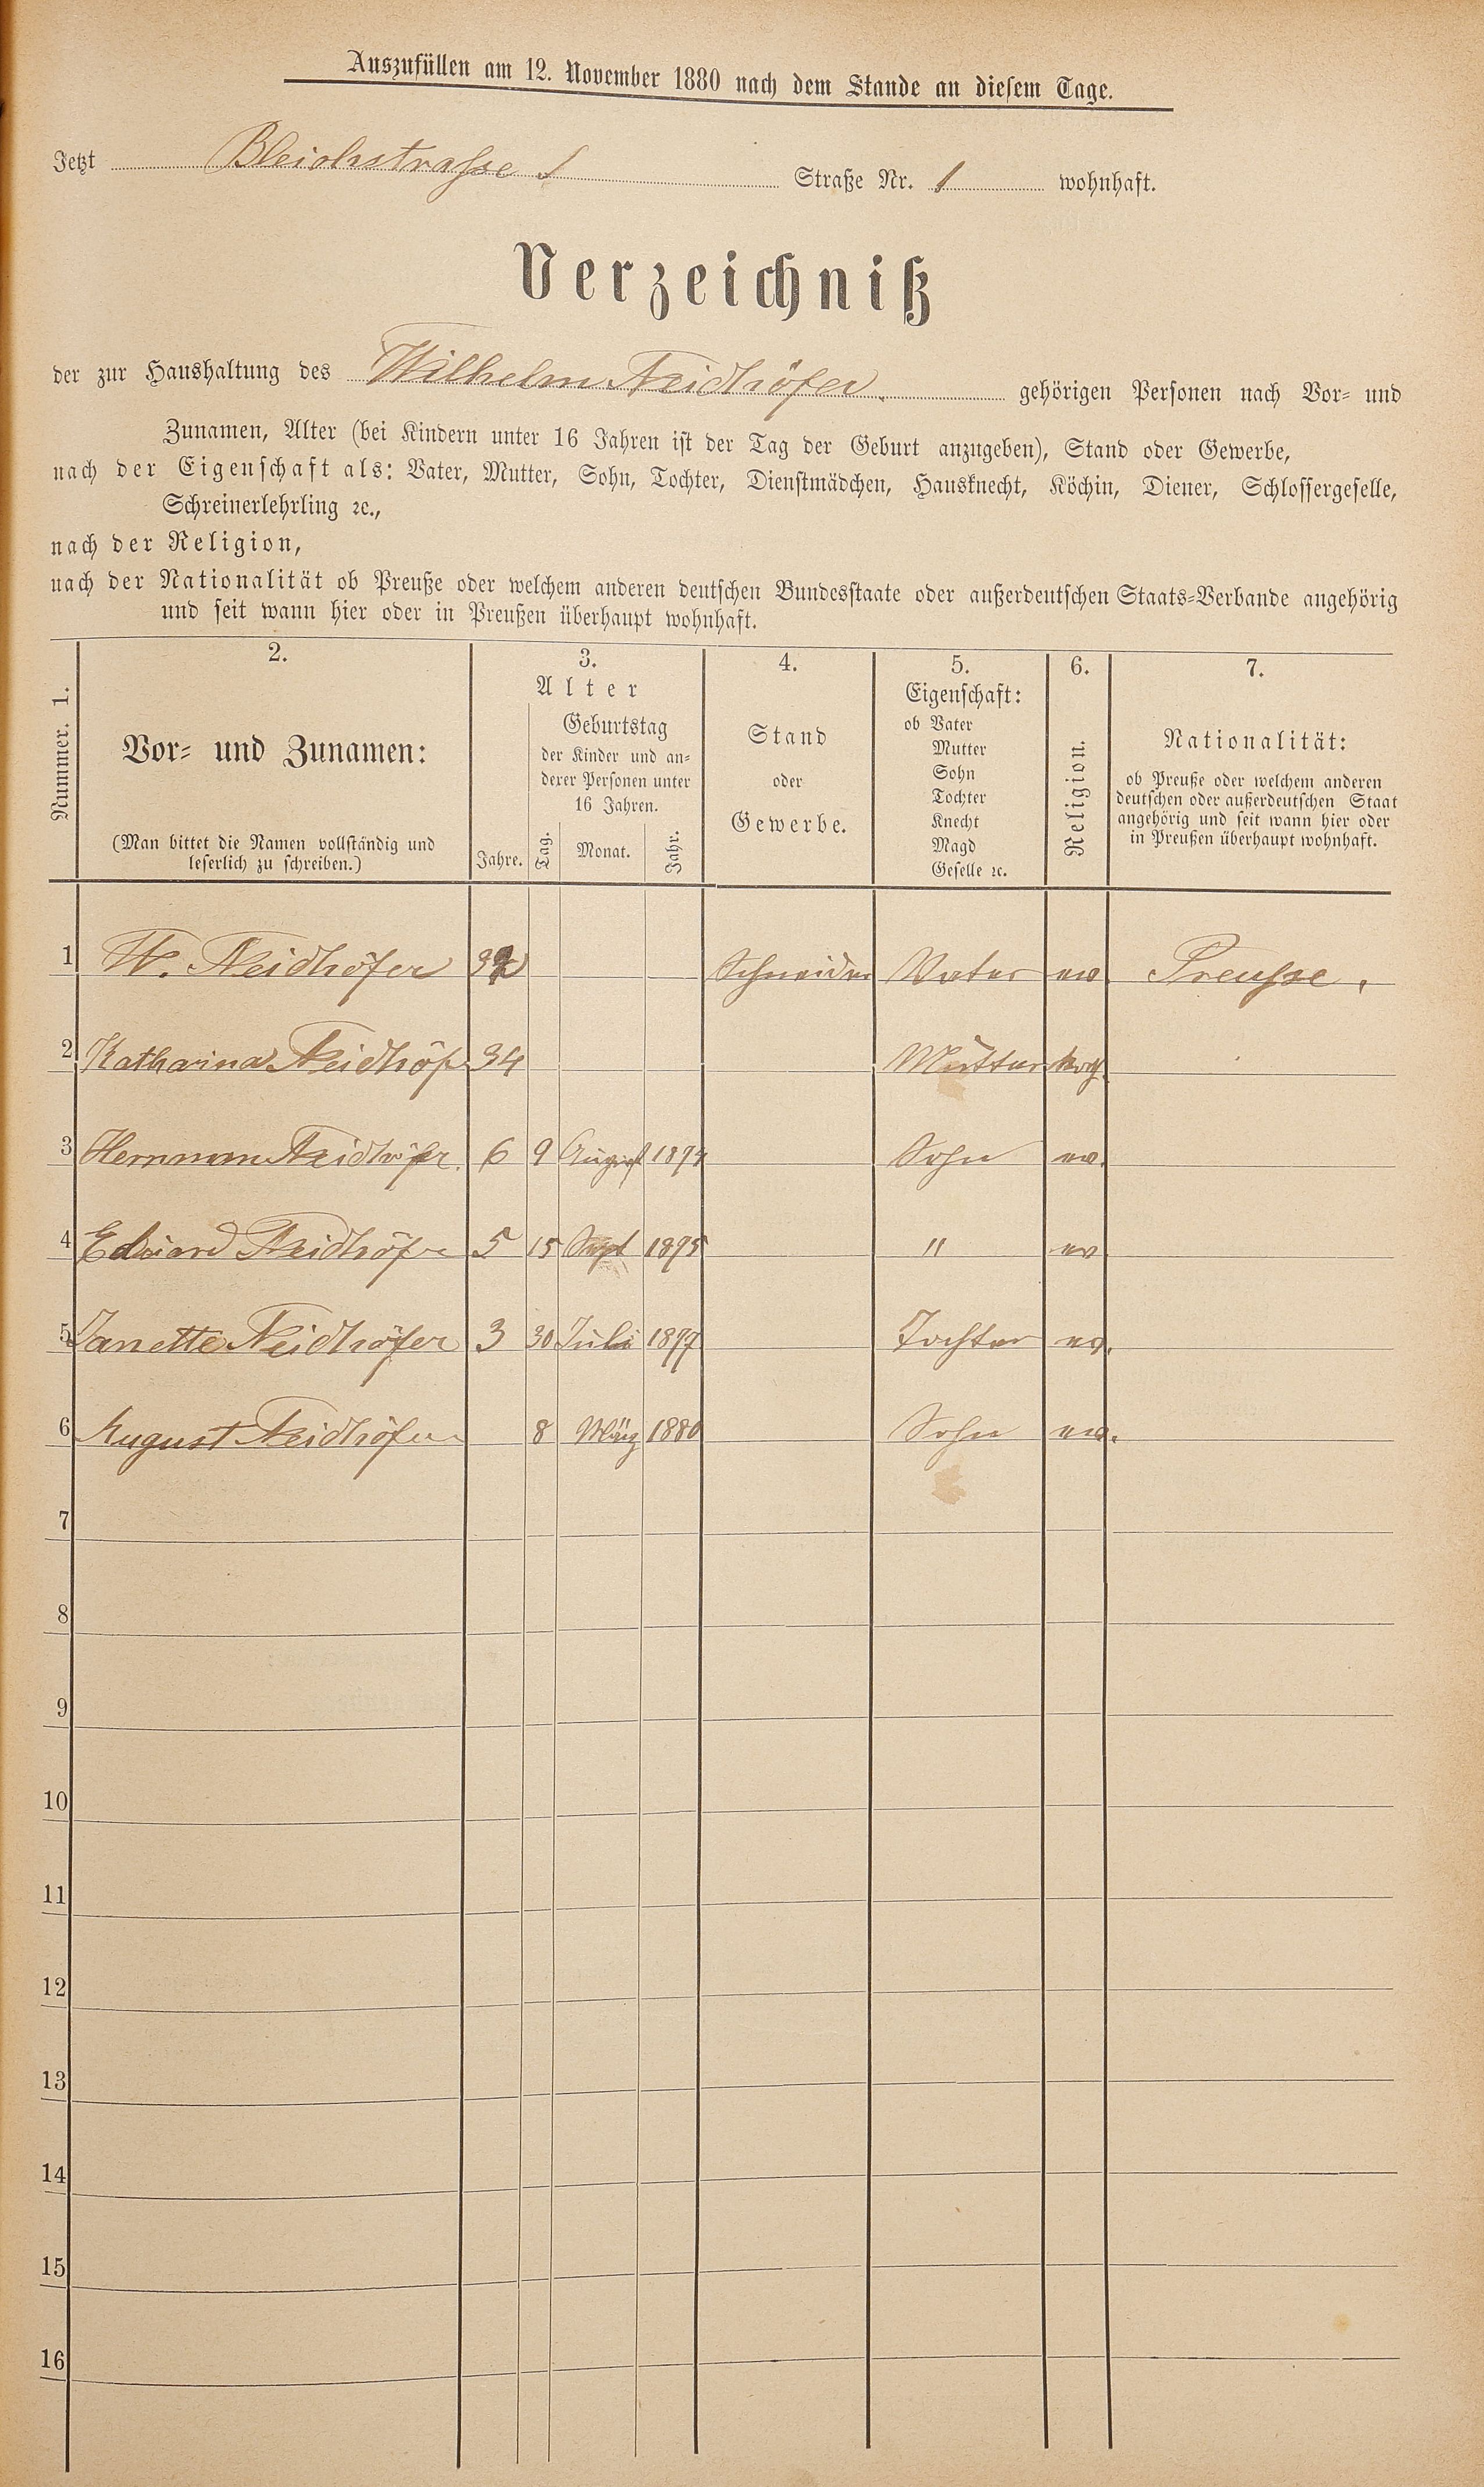 Auszufüllen am 12. November 1880 nach dem Stande an diesem Tage.
Jetzt Bleichstrasse 1 Straße Nr. 1 wohnhaft.
Verzeichniß
der zur Haushaltung des Wilhelm Neidhöfer. gehörigen Personen nach Vor- und
Zunamen, Alter (bei Kindern unter 16 Jahren ist der Tag der Geburt anzugeben), Stand oder Gewerbe,
nach der Eigenschaft als: Vater, Mutter, Sohn, Tochter, Dienstmädchen, Hausknecht, Köchin, Diener, Schlossergeselle,
Schreinerlehrling ꝛc.,
nach der Religion,
nach der Nationalität ob Preuße oder welchem anderen deutschen Bundesstaate oder außerdeutschen Staats-Verbande angehörig
und seit wann hier oder in Preußen überhaupt wohnhaft.
Nummer. 1.
2.
Vor- und Zunamen:
(Man bittet die Namen vollständig und
leserlich zu schreiben.)
3.
Alter
Jahre.
Geburtstag
der Kinder und an-
derer Personen unter
16 Jahren.
Tag.
Monat.
Jahr.
4.
Stand
oder
Gewerbe.
5.
Eigenschaft:
ob Vater
Mutter
Sohn
Tochter
Knecht
Magd
Geselle ꝛc.
6.
Religion.
7.
Nationalität:
ob Preuße oder welchem anderen
deutschen oder außerdeutschen Staat
angehörig und seit wann hier oder
in Preußen überhaupt wohnhaft.
1 W. Neidhöfer Schneider Vater ev. Preusse.
2 Katharina Neidhöfer 34 Mutter
3 Hermann Neidhöfer. 6 9 August 1874 Sohn ev.
4 Eduard Neidhöfer 5 15 Sept 1875 " ev.
5 Janette Neidhöfer 3 30 Juli 1877 Tochter ev.
6 August Neidhöfer 8 März 1880 Sohn ev.
7
8
9
10
11
12
13
14
15
16